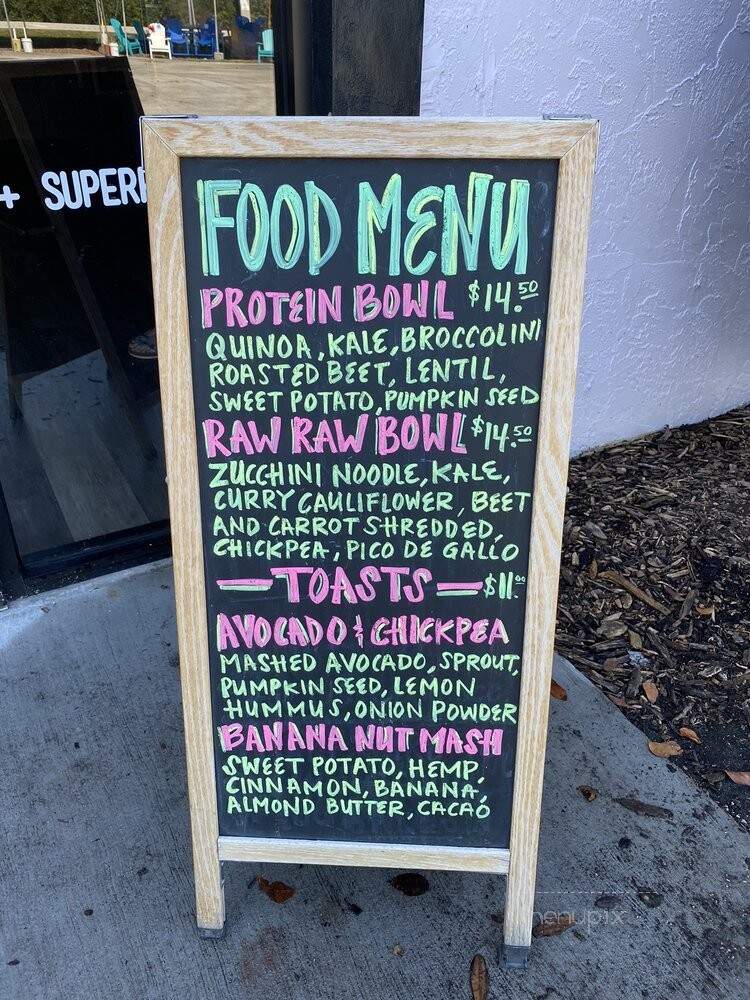 + SUPER
FOOD MENU
PROTEIN BOWL $14.50
QUINOA, KALE, BROCCOLINI
ROASTED BEET, LENTIL,
SWEET POTATO, PUMPKIN SEED
RAW RAW BOWL $14.50
ZUCCHINI NOODLE, KALE,
CURRY CAULIFLOWER, BEET
AND CARROT SHREDDED,
CHICKPEA, PICO DE GALLO
— TOASTS — $11.00
AVOCADO & CHICKPEA
MASHED AVOCADO, SPROUT,
PUMPKIN SEED, LEMON
HUMMUS, ONION POWDER
BANANA NUT MASH
SWEET POTATO, HEMP,
CINNAMON, BANANA,
ALMOND BUTTER, CACAO
menupix